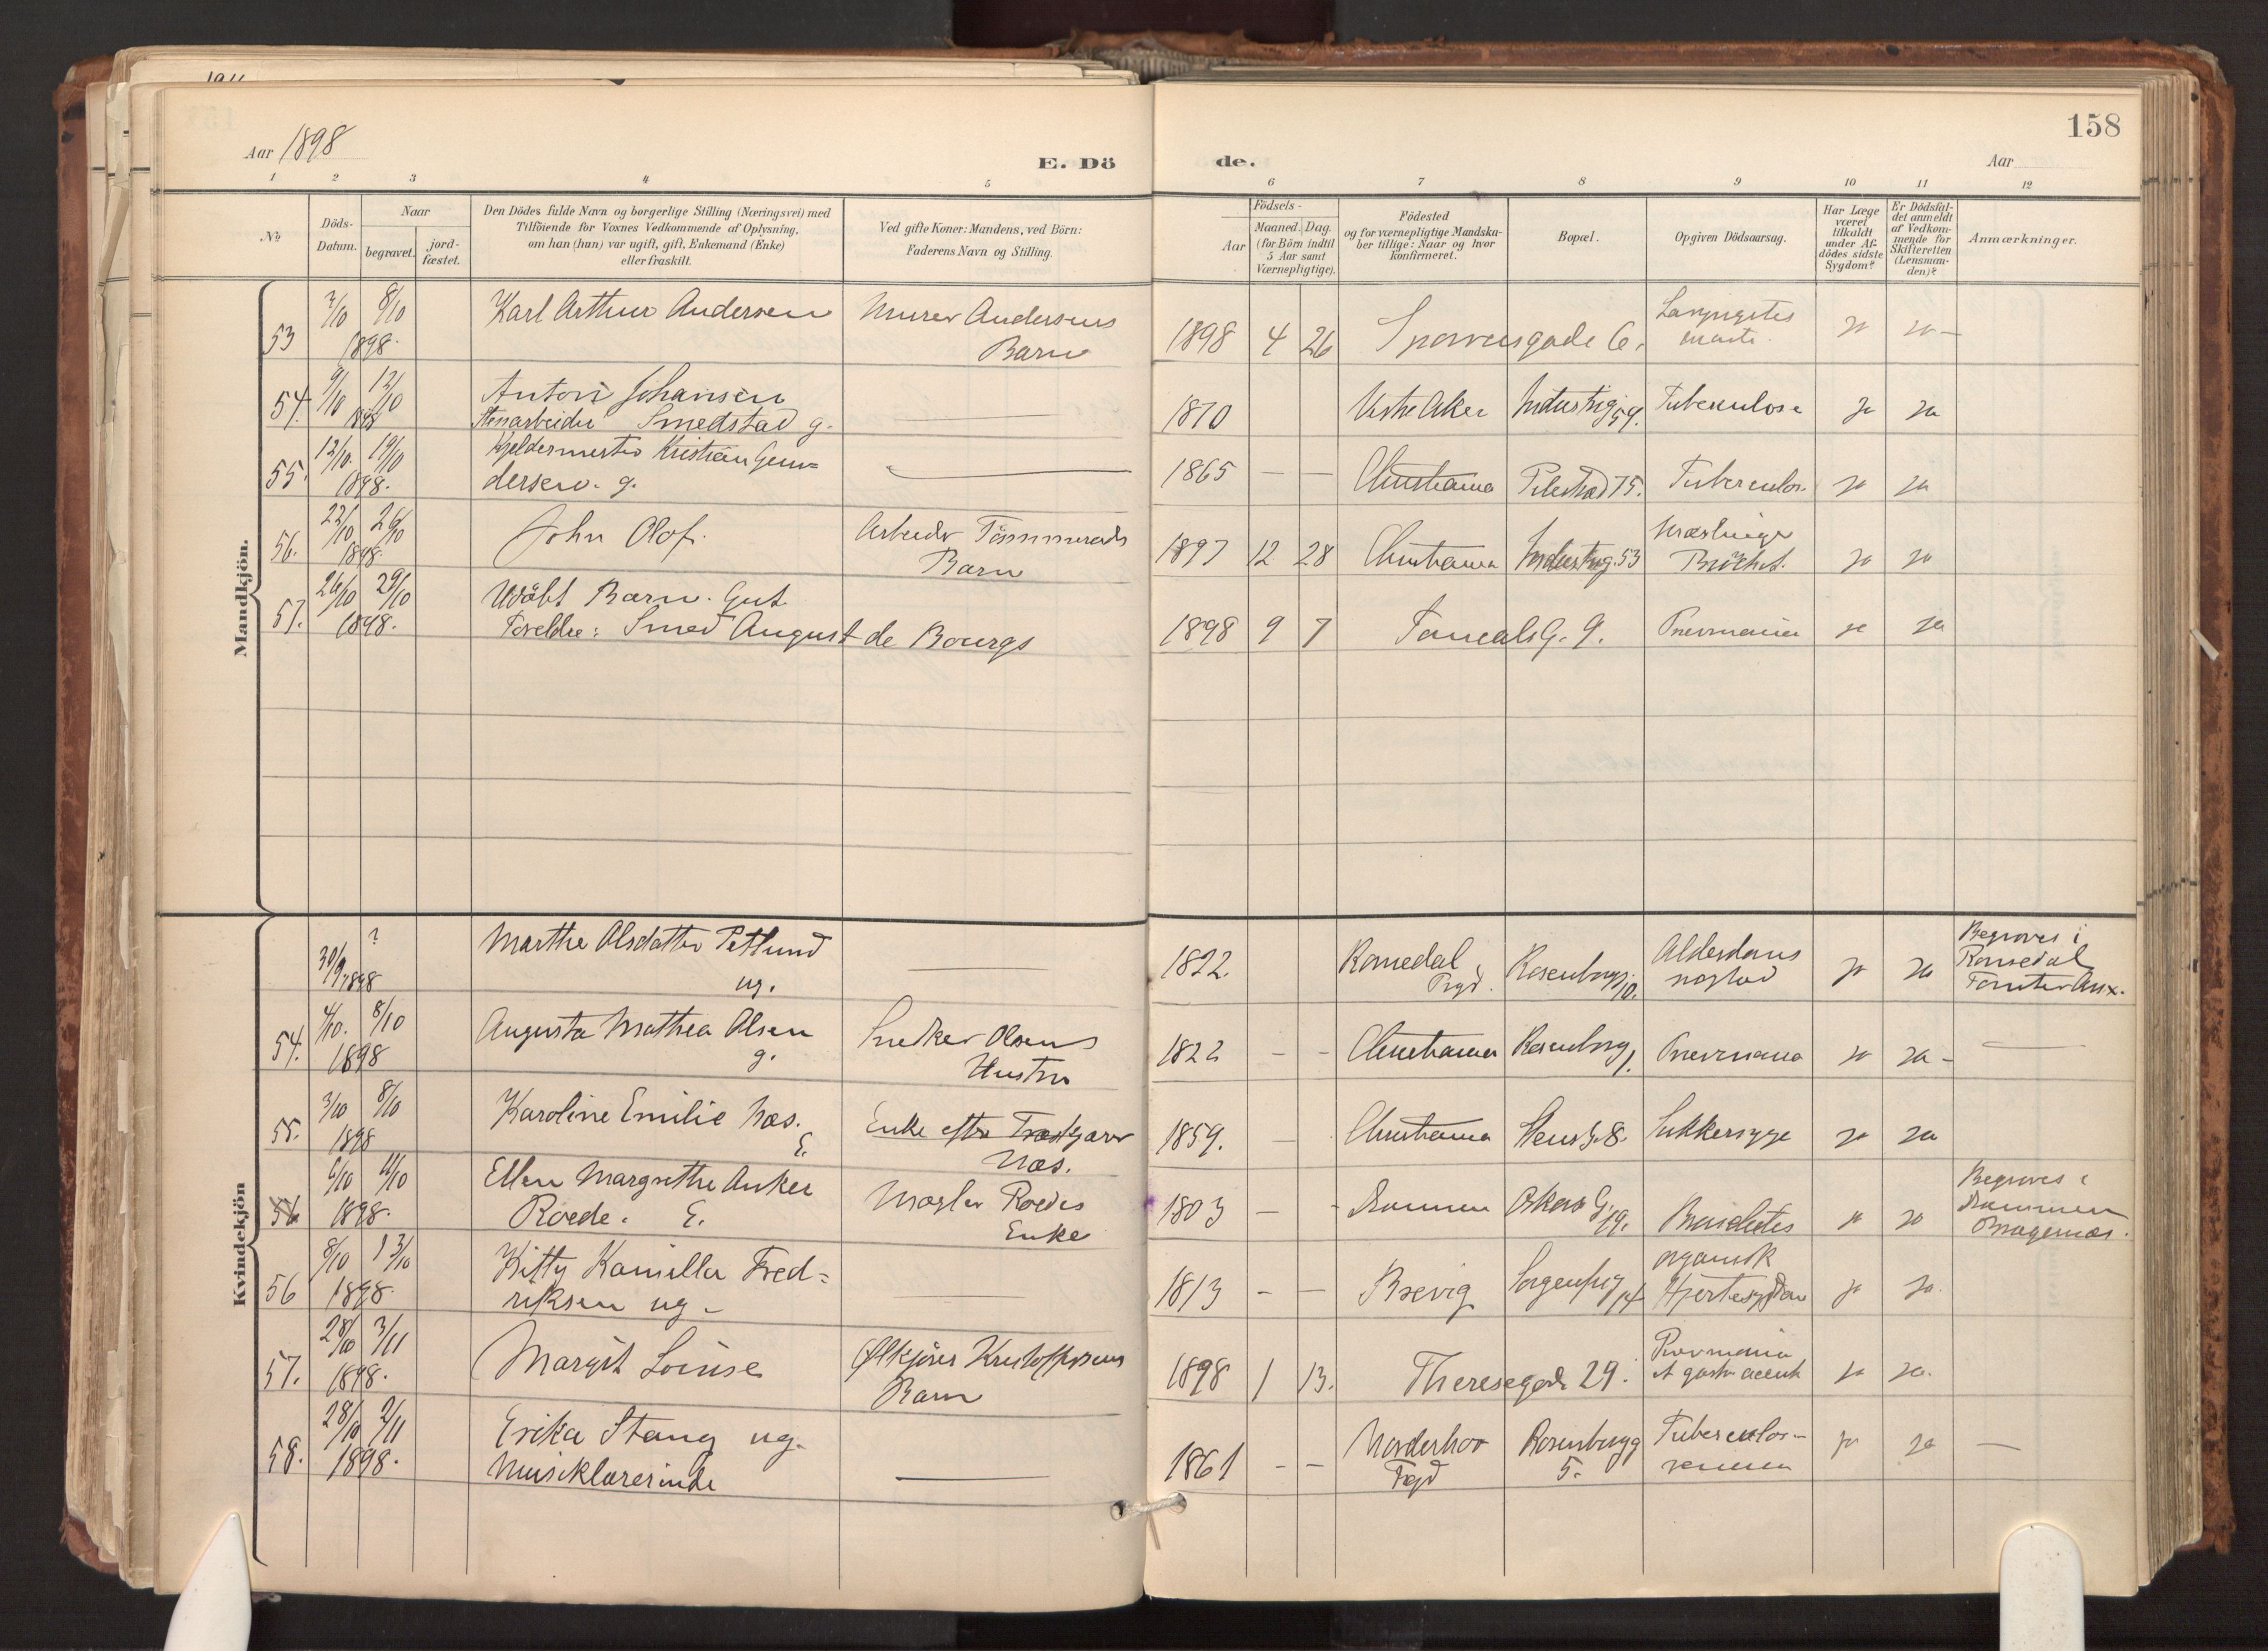 158
Aar 1898
E. Dö
de.
Aar
1 2 3 4 5 6 7 8 9 10 11 12
No
Döds-
Datum.
Naar
begravet.
jord-
fæstet.
Den Dödes fulde Navn og borgerlige Stilling (Næringsvei) med
Tilföiende for Voxnes Vedkommende af Oplysning,
om han (hun) var ugift, gift, Enkemand (Enke)
eller fraskilt.
Ved gifte Koner: Mandens, ved Börn:
Faderens Navn og Stilling.
Födsels-
Aar
Maaned. Dag.
(for Börn indtil
5 Aar samt
Værnepligtige).
Födested
og for værnepligtige Mandska-
ber tillige: Naar og hvor
konfirmeret.
Bopæl.
Opgiven Dödsaarsag.
Har Læge
været
tilkaldt
under Af-
dödes sidste
Sygdom?
Er Dödsfal-
det anmeldt
af Vedkom-
mende for
Skifteretten
(Lensman-
den)?
Anmærkninger.
Mandkjön.
53 3/10 8/10 1898. Karl Arthur Andersen Murer Andersens
Barn 1898 4 26 6. ja ja-
54. 9/10 12/10 1898 Anton Johansen
Stenarbeider Smedstad g. 1870 Vestre Aker Industrig. 59. Tuberculose ja ja
55. 12/10. 19/10 1898. Kristian Gun=
dersen. g. 1865 - - Christiania Pilestræd 75. Tuberculos. ja ja
56. 22/10 26/10 1898. John Olof. Arbeider
Barn 1897 12 28 Christiania Industrig. 53 Mæslinge
Bronchit. ja ja
57. 26/10 29/10 1898. Udöbt Barn. Gut
Foreldre: Smed August de Bourgs 1898 9 7 9. Pnevmonia ja ja
Kvindekjön
30/9 1898 ? Marthe Olsdatter Petlund
ug. 1822. Romedal
Prgd. Rosenborgg. 10. Alderdoms
ja ja Begraves i
Romedal
54. 4/10. 8/10 1898 Augusta Mathea Olsen
g. Snedker Olsens
Hustru 1822 - - Christiania Rosenborg 1. Pnevmonia ja ja-
55. 3/10 8/10 1898 Karoline Emilie Næs.
E. Enke efter
Næs. 1859. - Christiania Stensg. 8. Sukkersyge ja ja
56 6/10 11/10 1898. Ellen Margrethe Anker
Roede. E. Mægler Roedes
Enke 1803 - - Drammen Oskars G. 19. Bronchitis ja ja Begraves i
Drammen
Bragernæs.
56 8/10 13/10 1898. Kitty Kamilla Fred=
riksen ug- 1813 - - Brevig Sorgenfrig 14 organisk
Hjertesygdom ja ja.
57. 28/10 3/11 1898. Margit Louise Ølkjører Kristoffersens
Barn 1898 1 13. Theresegade 29. Pnevmonia
ja ja.
58. 28/10 2/11 1898. Erika Stang ug.
Musiklærerinde 1861 - - Norderhov
Prgd Rosenborgg
5. Tuberculos-
ja ja -